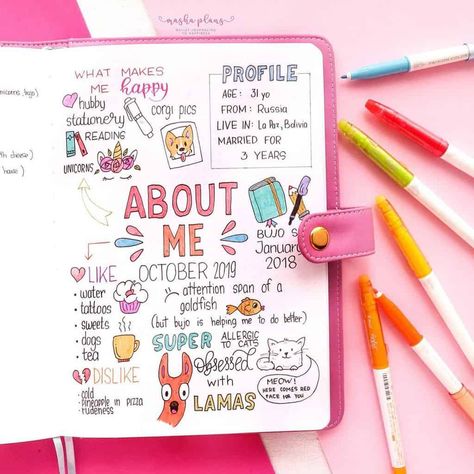 masha plans
BULLET JOURNALING
TO HAPPINESS
WHAT MAKES
ME happy
hubby
stationery
READING
UNICORNS
corgi pics
PROFILE
AGE: 31 yo
FROM: Russia
LIVE IN: La Paz, Bolivia
MARRIED FOR
3 YEARS
ABOUT
ME
OCTOBER 2019
BUJO S
Januar
2018
LIKE
• water
• tattoos
• sweets
• dogs
• tea
attention span of a
goldfish
(but bujo is helping me to do better)
SUPER ALLERGIC
TO CATS
Obsessed
with
LAMAS
MEOW!
HERE COMES RED
FACE FOR YOU
DISLIKE
• cold
• pineapple in pizza
• rudeness
have )